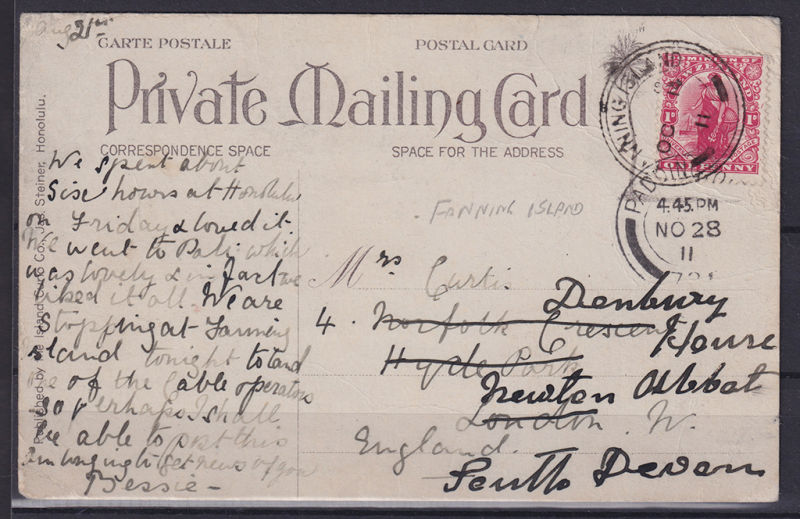 Aug 21st
CARTE POSTALE
POSTAL CARD
Private Mailing Card
CORRESPONDENCE SPACE
SPACE FOR THE ADDRESS
Published by the Island Curio Co., Jas. Steiner, Honolulu.
We spent about
Six hours at Honolulu
on Friday & loved it.
We went to Pali which
was lovely & in fact we
liked it all. We are
Stopping at Fanning
Island tonight to land
one of the Cable operators
so perhaps I shall
be able to post this
Am longing to get news of you
Bessie —
FANNING ISLAND
Mrs Curtis
4. Norfolk Crescent
Hyde Park
London. W.
England.
Denbury
House
Newton Abbot
South Devon
FANNING ISLAND
11
ONE PENNY
1D
PADDIN
4.45.PM
NO 28
11